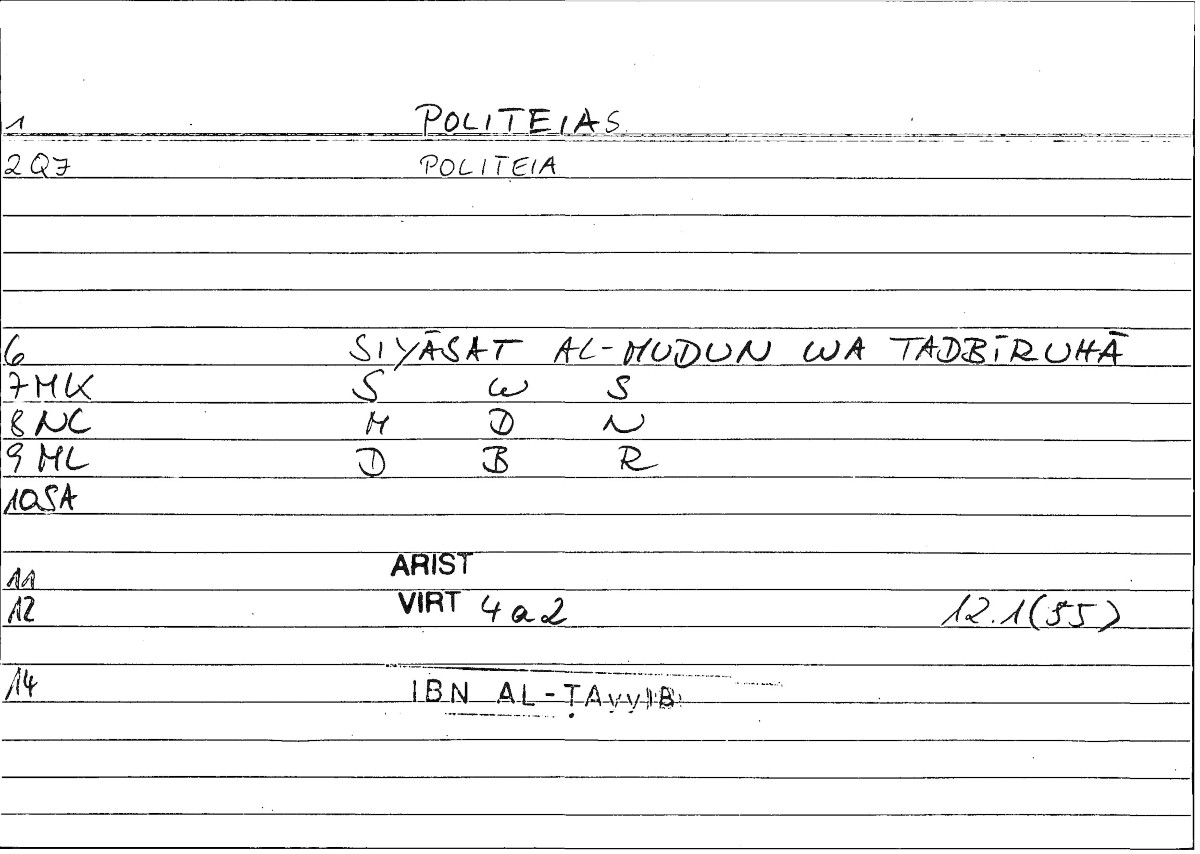 1 POLITEIAS
2 Q7 POLITEIA
6 SIYĀSAT AL-MUDUN WA TADBĪRUHĀ
7 MK S W S
8 NC M D N
9 ML D B R
10 SA
11 ARIST
12 VIRT 4a2 12.1(55)
14 IBN AL-ṬAYYIB